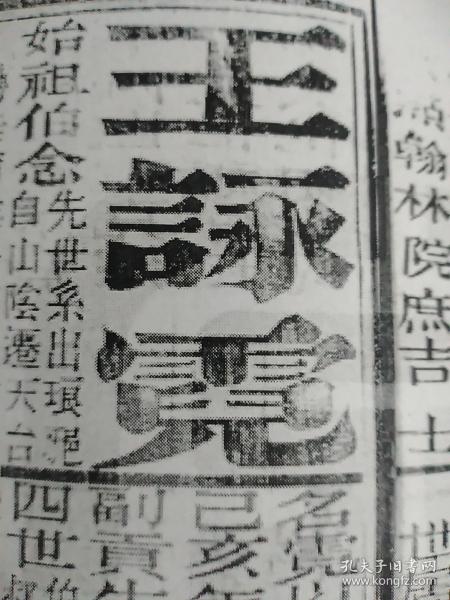 翰林院庶吉士
世
王詠霓
名
己亥年
副貢生
始祖伯念 先世系出琅琊
自山陰遷天台
四世
孔夫子旧书网
www.kongfz.com